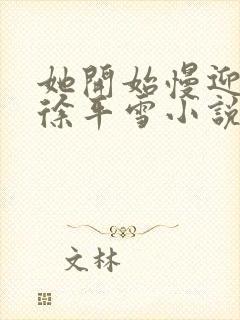 她開始慢迎
徐年雪小說
文林